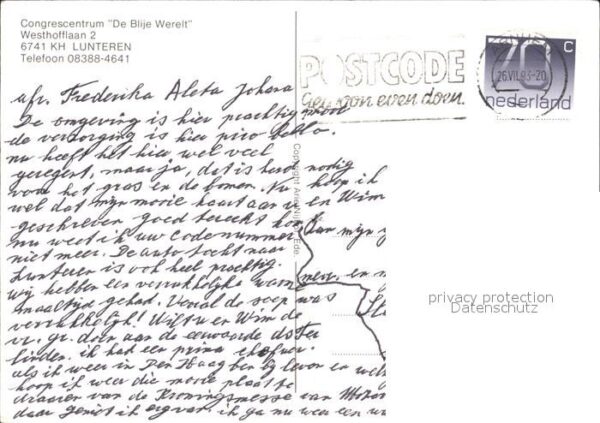 Congrescentrum "De Blije Werelt"
Westhofflaan 2
6741 KH LUNTEREN
Telefoon 08388-4641
POSTCODE
even doen.
26.VII.93-20
70 C
nederland
Mfr. Frederika Aleta Johara
De omgeving is hier prachtig mooi
de verzorging is hier pico bello.
nu heeft het hier wel veel
geregent, maar ja, dat is hard nodig
voor het gras en de bomen. Nu hoop ik
wel dat mijn mooie kaart aan u en Wim
geschreven goed terecht kom
nu weet ik uw codenummer
niet meer. De autotocht naar
Lunteren is ook heel prachtig.
wij hebben een verrukkelijke warm
maaltijd gehad. Vooral de soep was
verrukkelijk! Wilt u en Wim de
vr. gr. doen aan de eerwaarde dster
linden. ik had een prima chauffeur.
als ik weer in Den Haag ben bij leven en wel
hoop ik weer die mooie plaat te
draaien van de Kroningsmesse van Mozar
daar geniet ik erg van. ik ga nu weer een uu
Dan mijn
en n
Copyright
Ede
privacy protection
Datenschutz